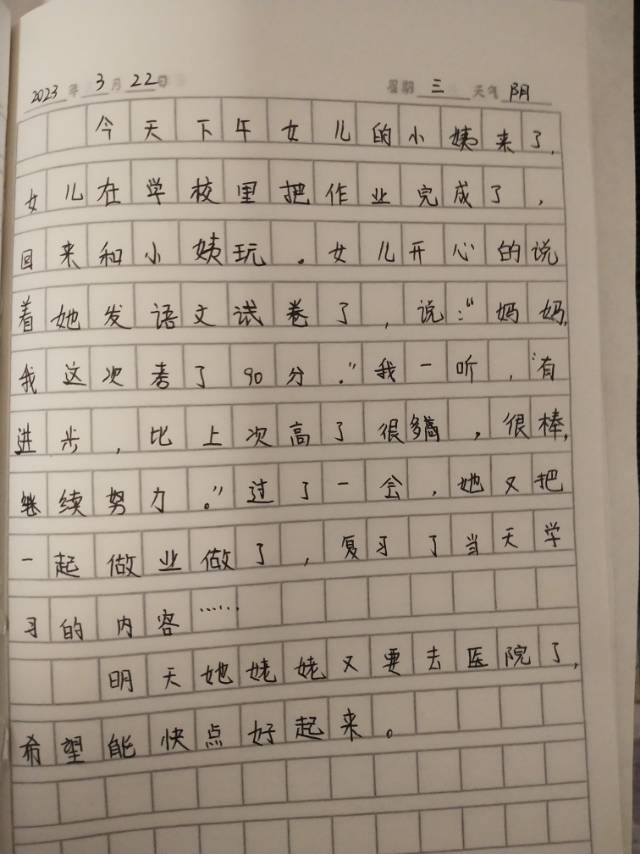 2023年3月22日 星期三 天气阴
今天下午女儿的小姨来了,
女儿在学校里把作业完成了,
回来和小姨玩。女儿开心的说
着她发语文试卷了,说:"妈妈,
我这次考了90分."我一听,"有
进步,比上次高了很多,很棒,
继续努力。"过了一会,她又把
一起做业做了,复习了当天学
习的内容……
明天她姥姥又要去医院了,
希望能快点好起来。